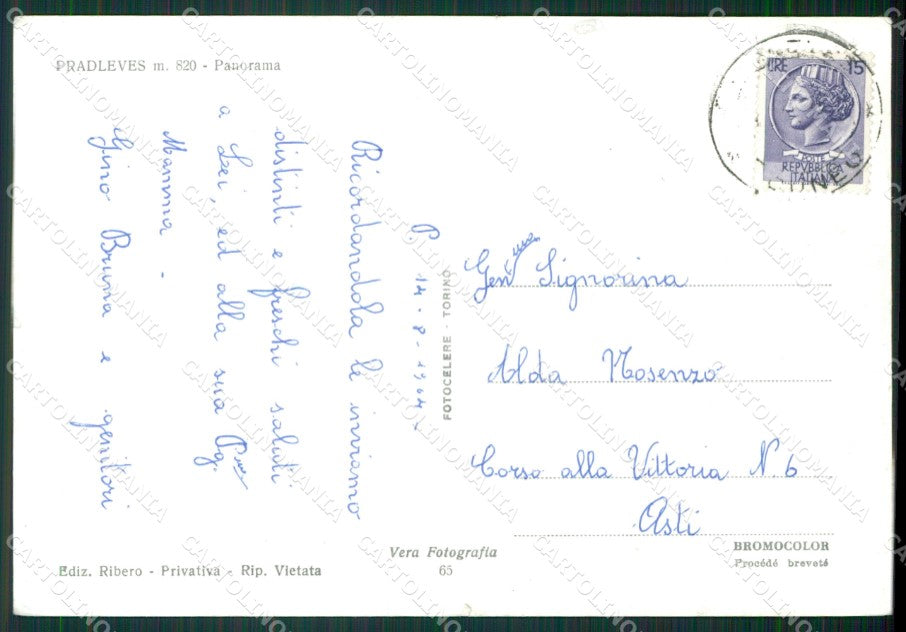 PRADLEVES m. 820 - Panorama
P. 14-8-1964
Ricordandola le inviamo
distinti e freschi saluti
a Lei, ed alla sua
Mamma -
Gino Bruna e genitori
LIRE 15
POSTE
REPVBBLICA
ITALIANA
CUNEO
Gen Signorina
Alda Mosenzo
Corso alla Vittoria N. 6
Asti
FOTOCELERE - TORINO
Vera Fotografia
65
Ediz. Ribero - Privativa - Rip. Vietata
BROMOCOLOR
Procédé breveté
CARTOLINOMANIA